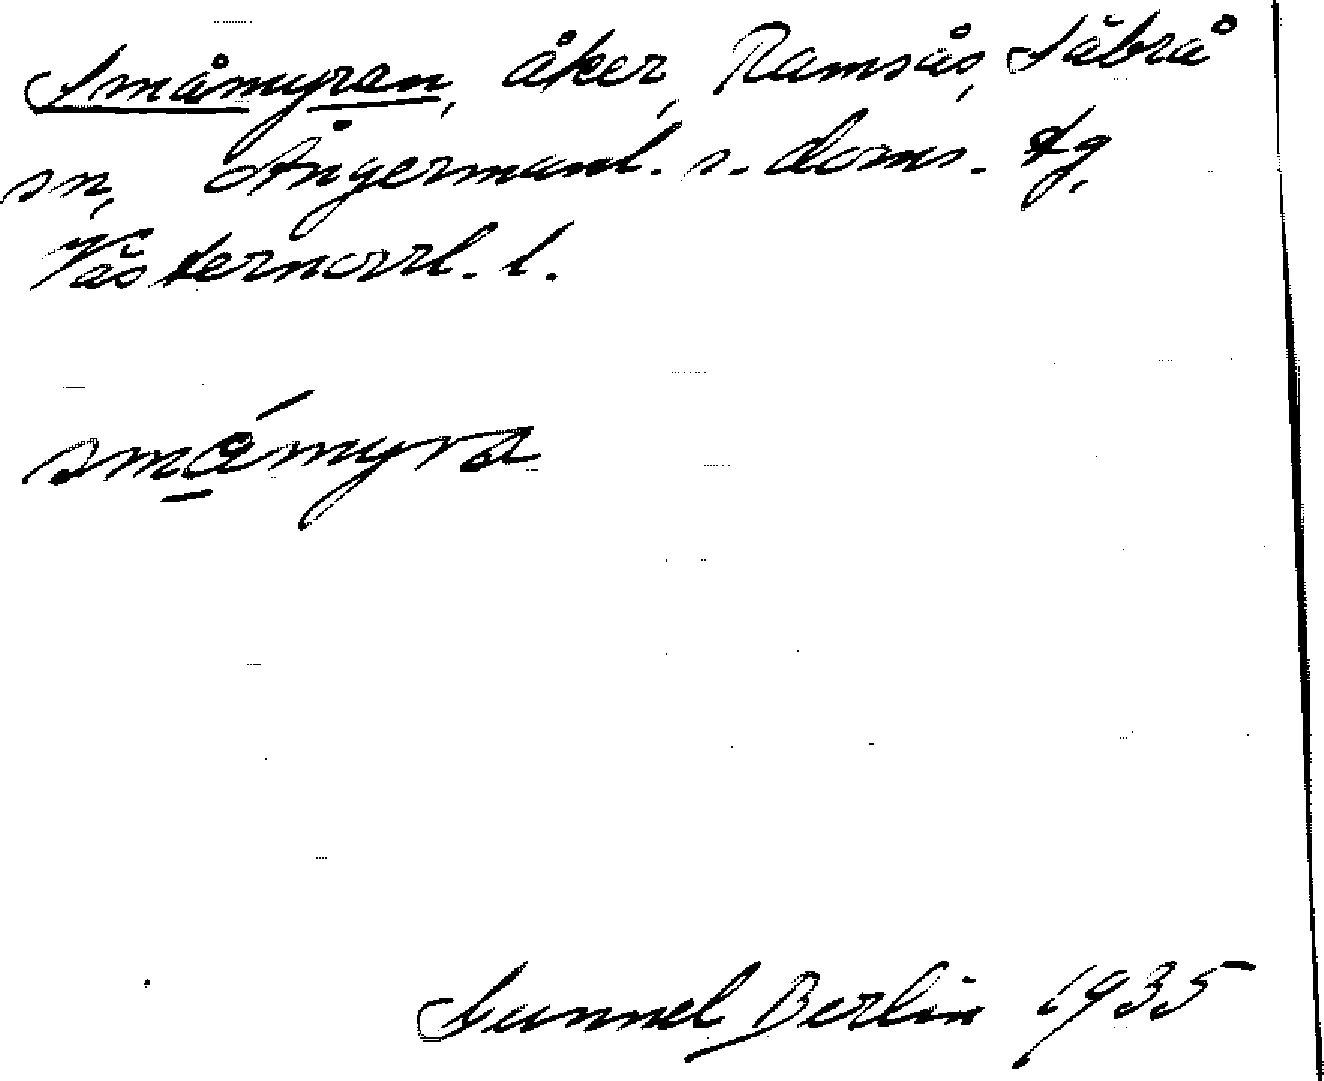 Småmyren, åker, Ramsås, Säbrå
sn, Ångermanl. s. doms. tg,
Västernorrl. l.
småmyra
Sunnel Berlin 1935